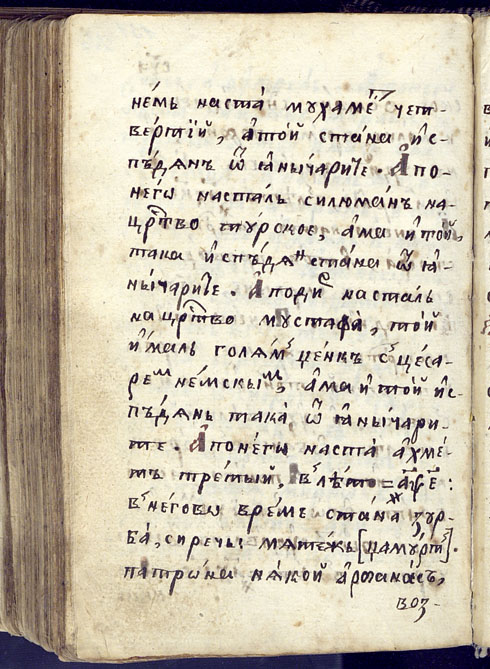 нємь наста́ мꙋхамє́т чет-
ве́ртїй, а҆то́й ста́на и҆с-
пъ́дѧнъ ѿ ꙗны́чарите. А҆по-
него̀ наста́ль силюма́нъ на-
ца́рⷭ҇тво тꙋ́рское, а҆ма и҆то́й,
така и҆спъ́дѧⷩ ста́на ѿ ꙗ-
ны́чарите. А҆поди́с наста́ль
нацⷭ҇рⷭ҇тво мꙋстафа̀, то́й
и҆́маль голѧ́мъ ценкъ съ це́са-
реⷨ не́мскыⷨ, а҆ма и҆ то́й ис-
пъ́дѧнь така̀, ѿ ꙗны́чари-
те. А҆понего̀ наста̀ а҆хме́-
тъ тре́тый, въ лѣ́то = ҂аѱ҃є:
въ него́во вре́ме ста́на зꙋр-
ба̀, си́речь: мѧте́жь [цамꙋрт].
патро́на нѧ́кой а҆рⷩ҇а́насъ,
воз-